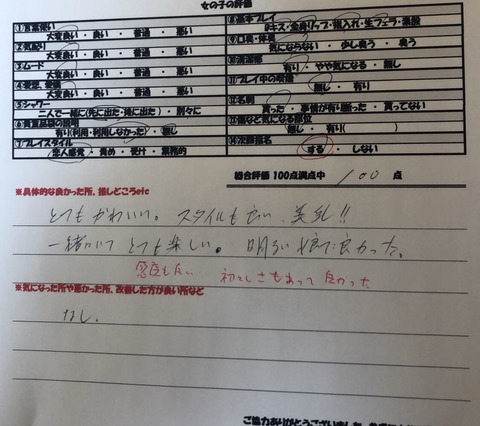 女の子の評価
①言葉使い
大変良い・良い・普通・悪い
②気配り
大変良い・良い・普通・悪い
③ムード
大変良い・良い・普通・悪い
④愛想、愛嬌
大変良い・良い・普通・悪い
⑤シャワー
二人で一緒に(先に出た・後に出た)・別々に
有り(利用・利用しなかった)・無し
⑦プレイスタイル
恋人感覚・責め・受け・業務的
⑧基本プレイ
Dキス・全身リップ・指入れ・生フェラ・素股
⑨口臭・体臭
気にならない・少し臭う・臭う
有り・やや気になる・無し
無し・有り
⑫名刺
貰った・事情が有り断った・貰ってない
⑬傷など気になる部位
無し・有り( )
⑭次回指名
する・しない
総合評価 100点満点中 100 点
※具体的な良かった所、推しどころetc
とてもかわいい。スタイルも良い、美乳!!
一緒にいてとても楽しい。明るい娘で良かった。
感度もよい 初々しさもあって良かった
※気になった所や悪かった所、改善した方が良い所など
なし。
ご協力ありがとうございました。